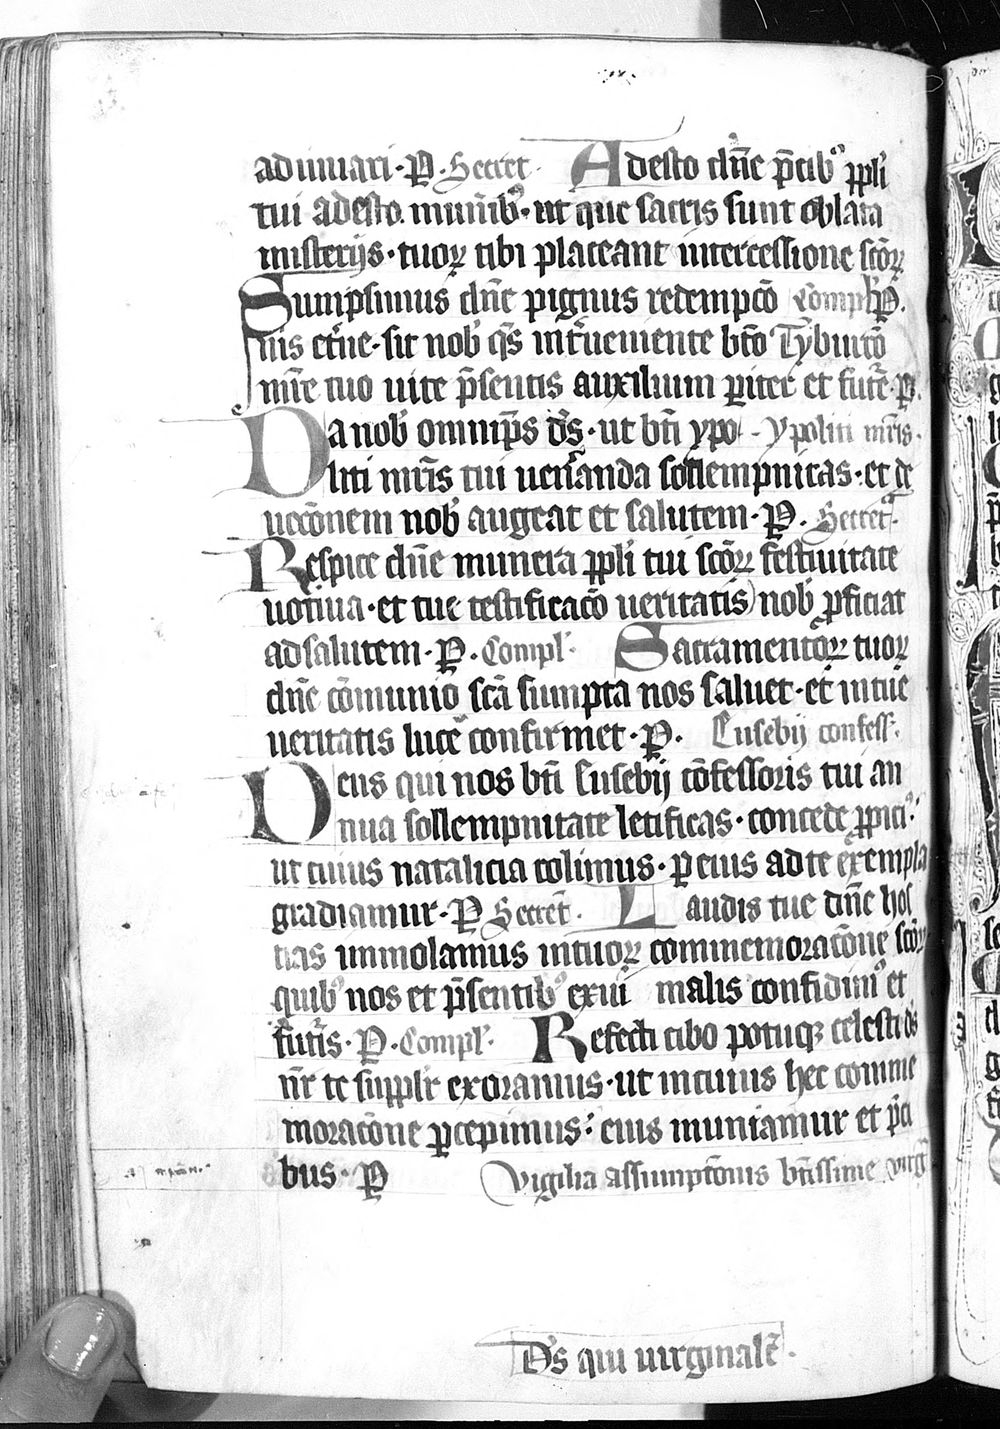 adiuuari · P̃ · Secret̃ · Adesto dñe p̃cibꝰ ppli
tui adesto munib̃ · ut que sacris sunt oblata
misterijs · tuoꝝ tibi placeant intercessione sc̃oꝝ
Sumpsimus dñe pignus redempc̃o Compl̃ P̃ ·
nis et̃ne · sit nob̃ q̃s int̃ueniente bt̃o Tyburc̃o
mr̃e tuo uite p̃sentis auxilium ꝑiter et futũe · P̃ ·
Da nob̃ omnip̃s ds̃ · ut bt̃i ypo - ypoliti mr̃is ·
liti mr̃is tui uen̾anda sollempnitas · et de
uoc̃onem nob̃ augeat et salutem · P̃ · Secret̃ ·
Respice dñe munera ppli tui sc̃oꝝ festiuitate
uotiua · et tue testificac̃o ueritatis nob̃ ꝓficiat
ad salutem · P̃ · Compl̃ · Sacramentoꝝ tuoꝝ
dñe cõmunio sc̃a sumpta nos saluet · et in tue
ueritatis luce confirmet · P̃ · Eusebij confess̃ ·
Deus qui nos bt̃i Eusebij cõfessoris tui an
nua sollempnitate letificas · concede ꝓpiciꝰ ·
ut cuius natalicia colimus · ꝑ eius ad te exempla
gradiamur · P̃ Secret̃ · Laudis tue dñe hos
tias immolamus in tuoꝝ commemorac̃one sc̃oꝝ
quibꝰ nos et p̃sentibꝰ exui malis confidimꝰ et
futũis · P̃ · Compl̃ · Refecti cibo potuqꝫ celesti ds̃
nr̃ te supplr̃ exoramus · ut in cuius hec comme
morac̃one ꝑcepimus · eius muniamur et p̃ci
bus · P̃ Vigilia assumptõnis bt̃issime virg̃
Ds̃ qui uirginalẽ ·